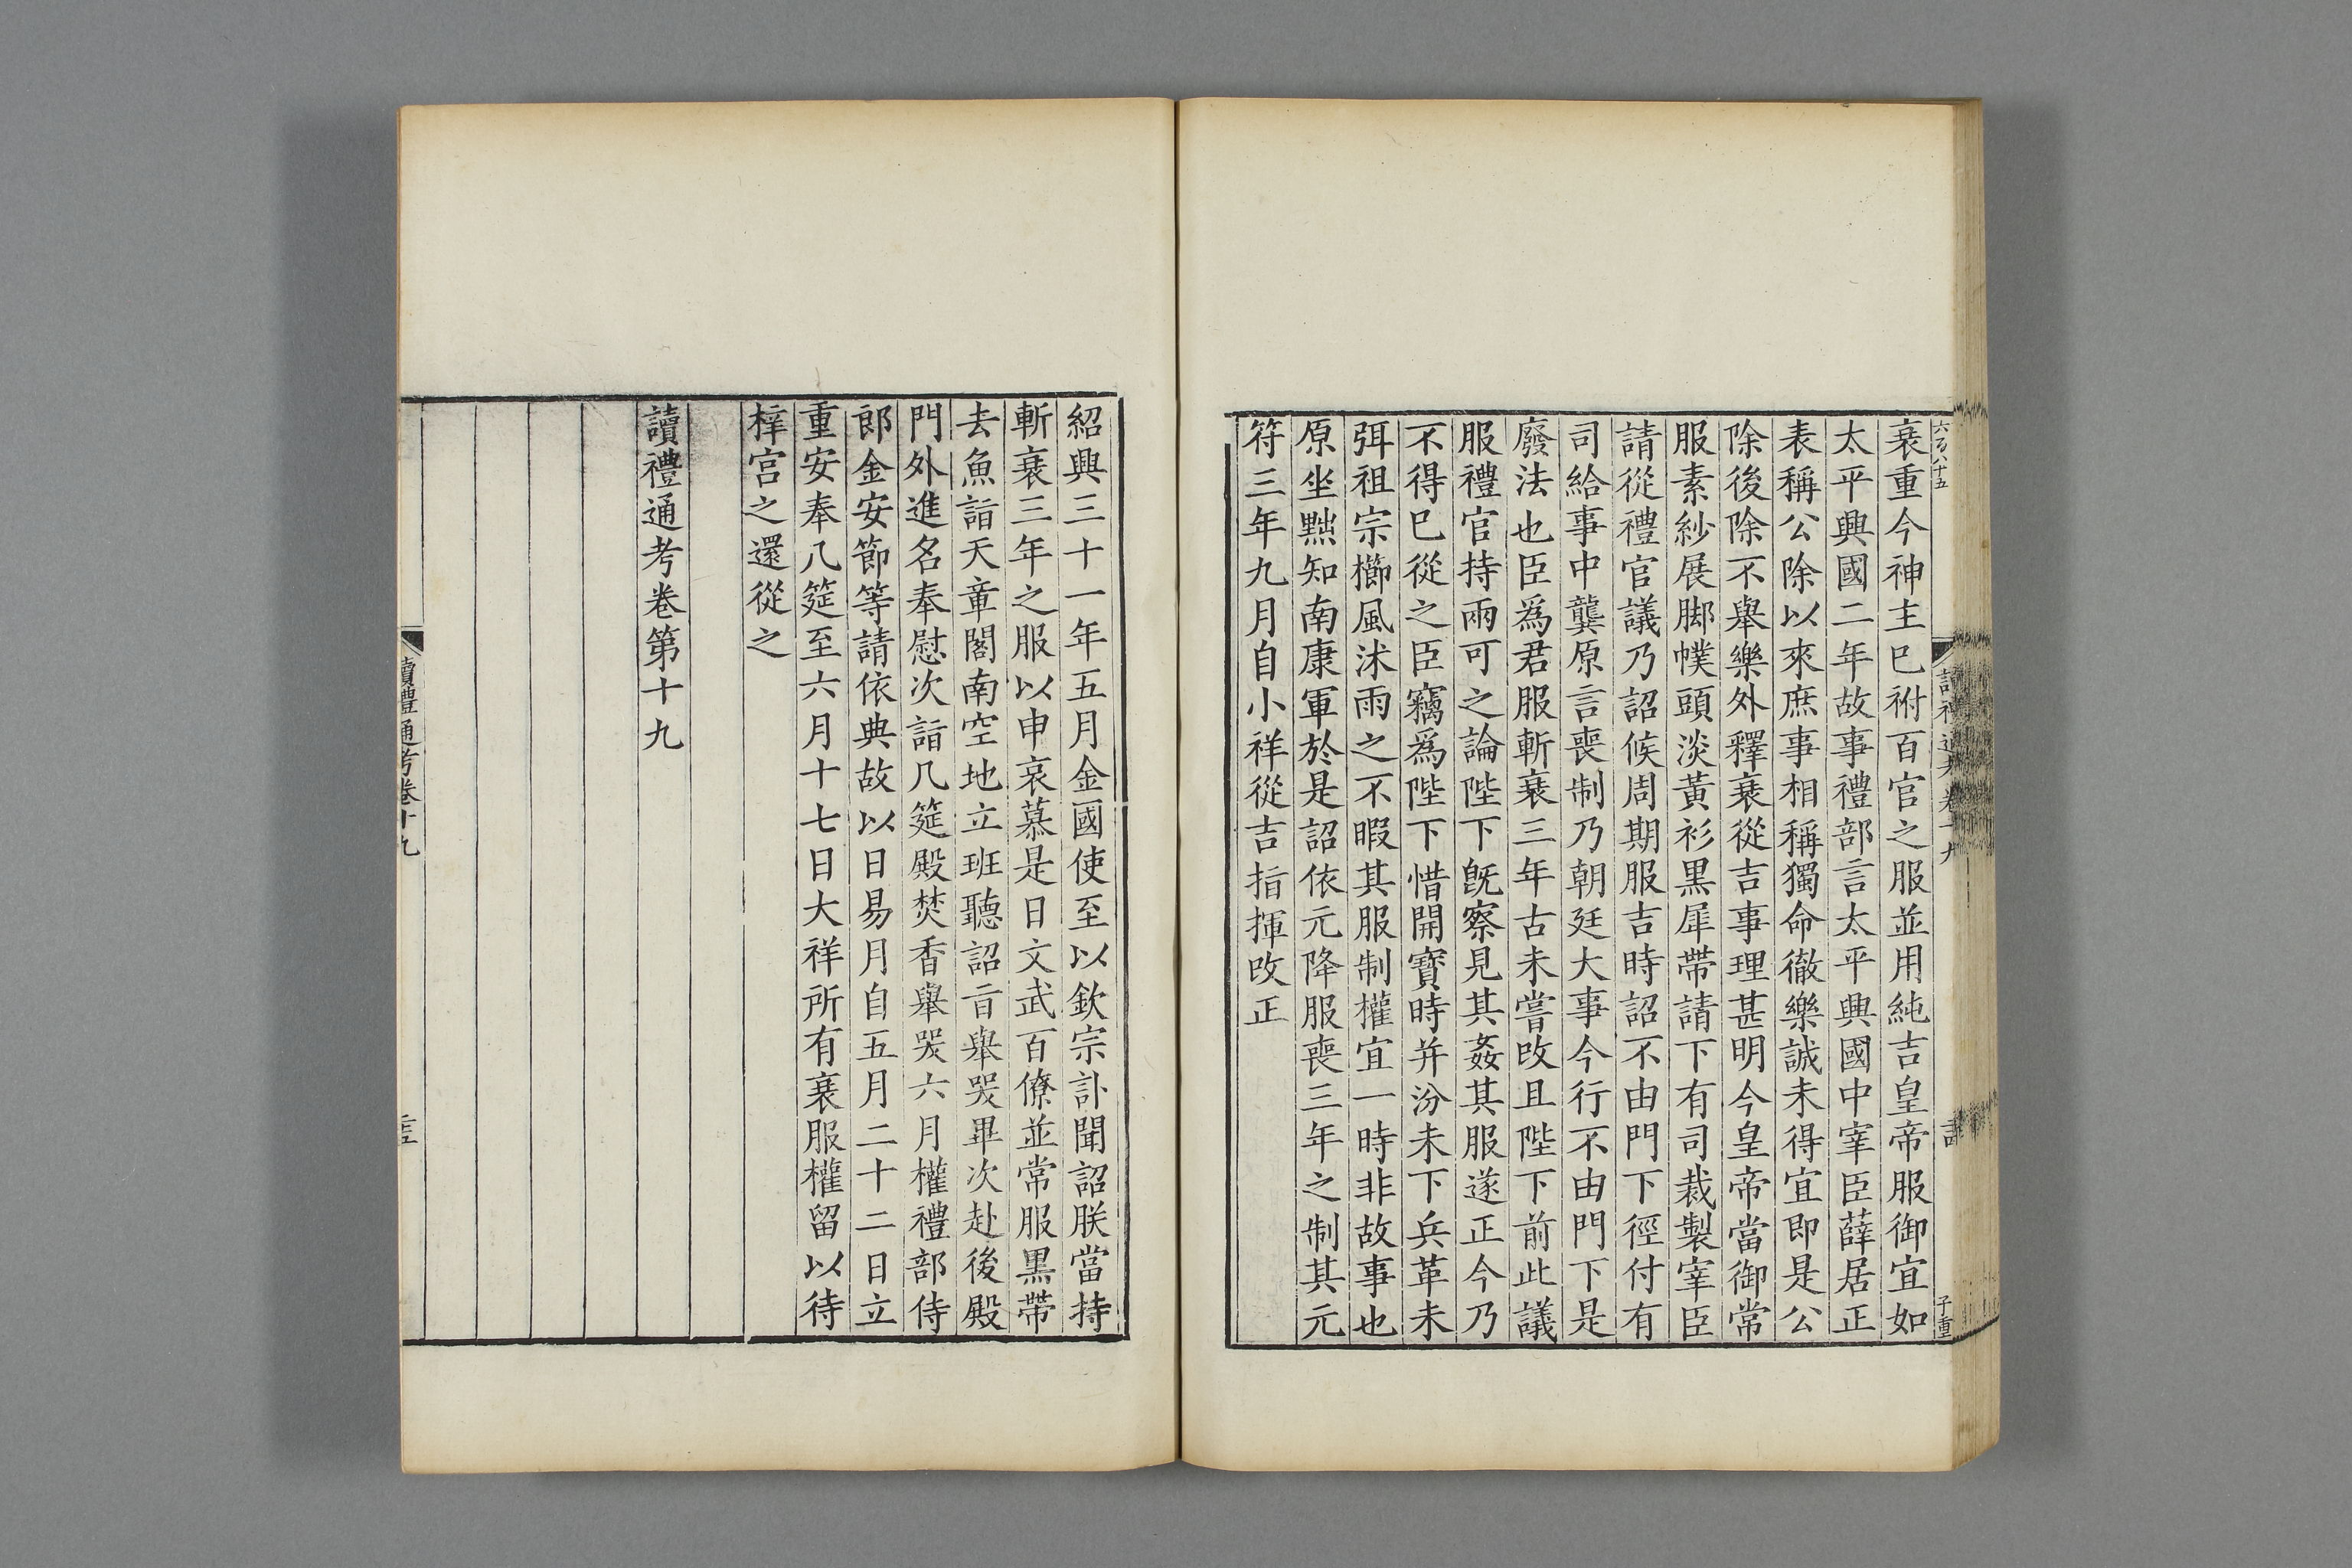 六百八十五
子重
衰重今神主巳祔百官之服並用純吉皇帝服御宜如
太平興國二年故事禮部言太平興國中宰臣薛居正
表稱公除以來庶事相稱獨命徹樂誠未得宜即是公
除後除不舉樂外釋衰從吉事理甚明今皇帝當御常
服素紗展脚幞頭淡黃衫黑犀帶請下有司裁製宰臣
請從禮官議乃詔候周期服吉時詔不由門下徑付有
司給事中龔原言喪制乃朝廷大事今行不由門下是
廢法也臣爲君服斬衰三年古未嘗改且陛下前此議
服禮官持兩可之論陛下旣察見其姦其服遂正今乃
不得已從之臣竊爲陛下惜開寶時并汾未下兵革未
弭祖宗櫛風沐雨之不暇其服制權宜一時非故事也
原坐黜知南康軍於是詔依元降服喪三年之制其元
符三年九月自小祥從吉指揮改正
紹興三十一年五月金國使至以欽宗訃聞詔朕當持
斬衰三年之服以申哀慕是日文武百僚並常服黑帶
去魚詣天章閣南空地立班聽詔旨舉哭畢次赴後殿
門外進名奉慰次詣几筵殿焚香舉哭六月權禮部侍
郎金安節等請依典故以日易月自五月二十二日立
重安奉几筵至六月十七日大祥所有衰服權留以待
梓宮之還從之
讀禮通考卷第十九
讀禮通考卷十九